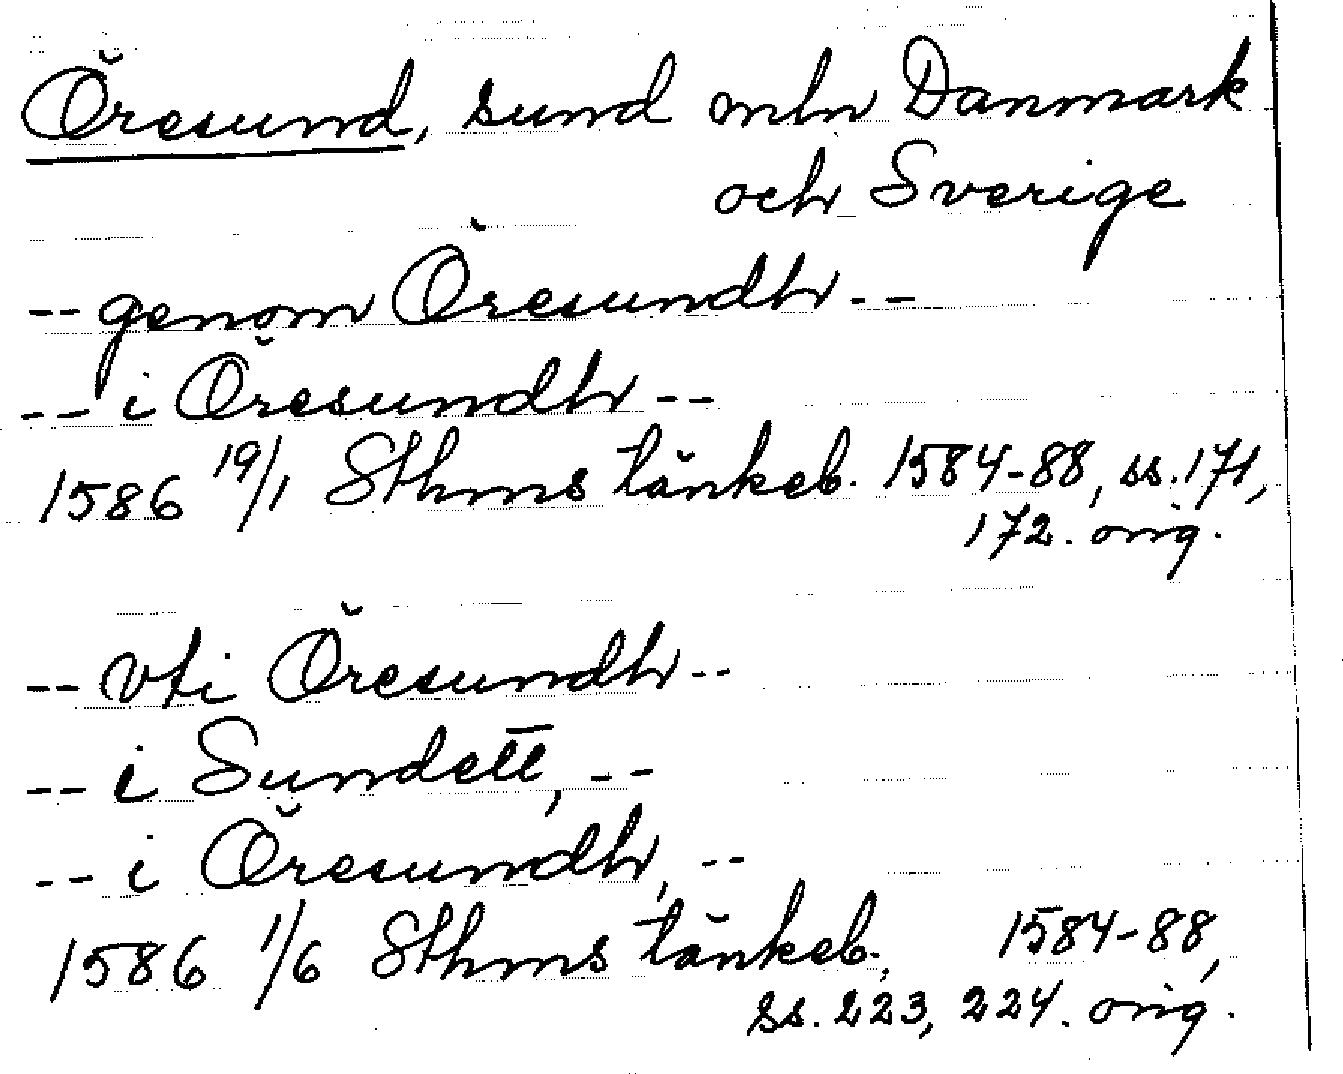 Öresund, sund mln Danmark
och Sverige
-- genom Öresundh --
-- i Öresundh --
1586 19/1 Sthms tänkeb. 1584-88, ss. 171,
172. orig.
-- vti Öresundh --
-- i Sundett, --
-- i Öresundh, --
1586 1/6 Sthms tänkeb., 1584-88,
ss. 223, 224. orig.